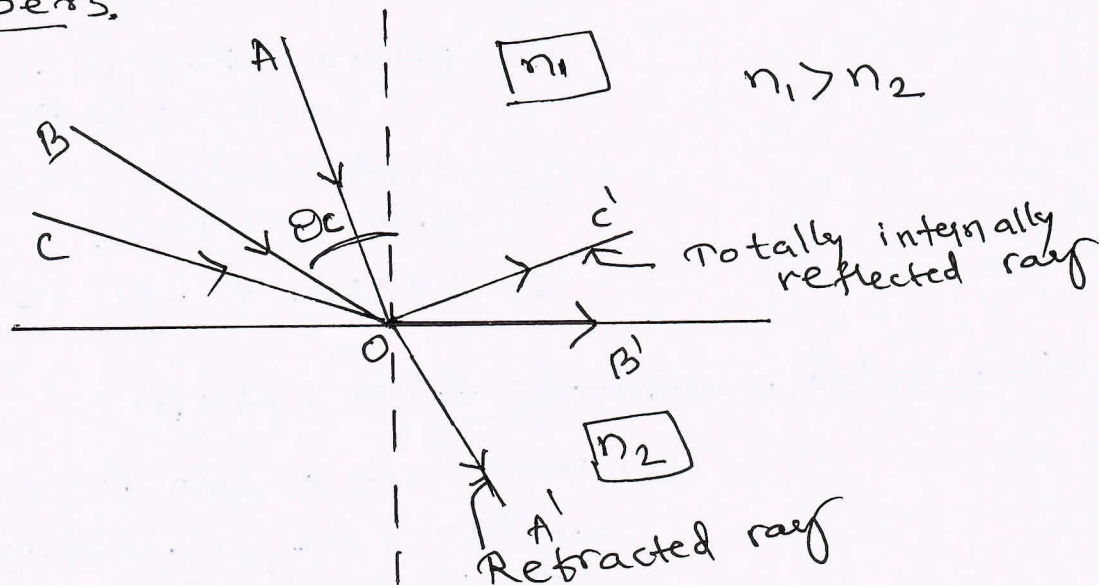 bers.
A
n1
n1 > n2
B
θc
C
C'
Totally internally
reflected ray
O
B'
n2
A'
Refracted ray